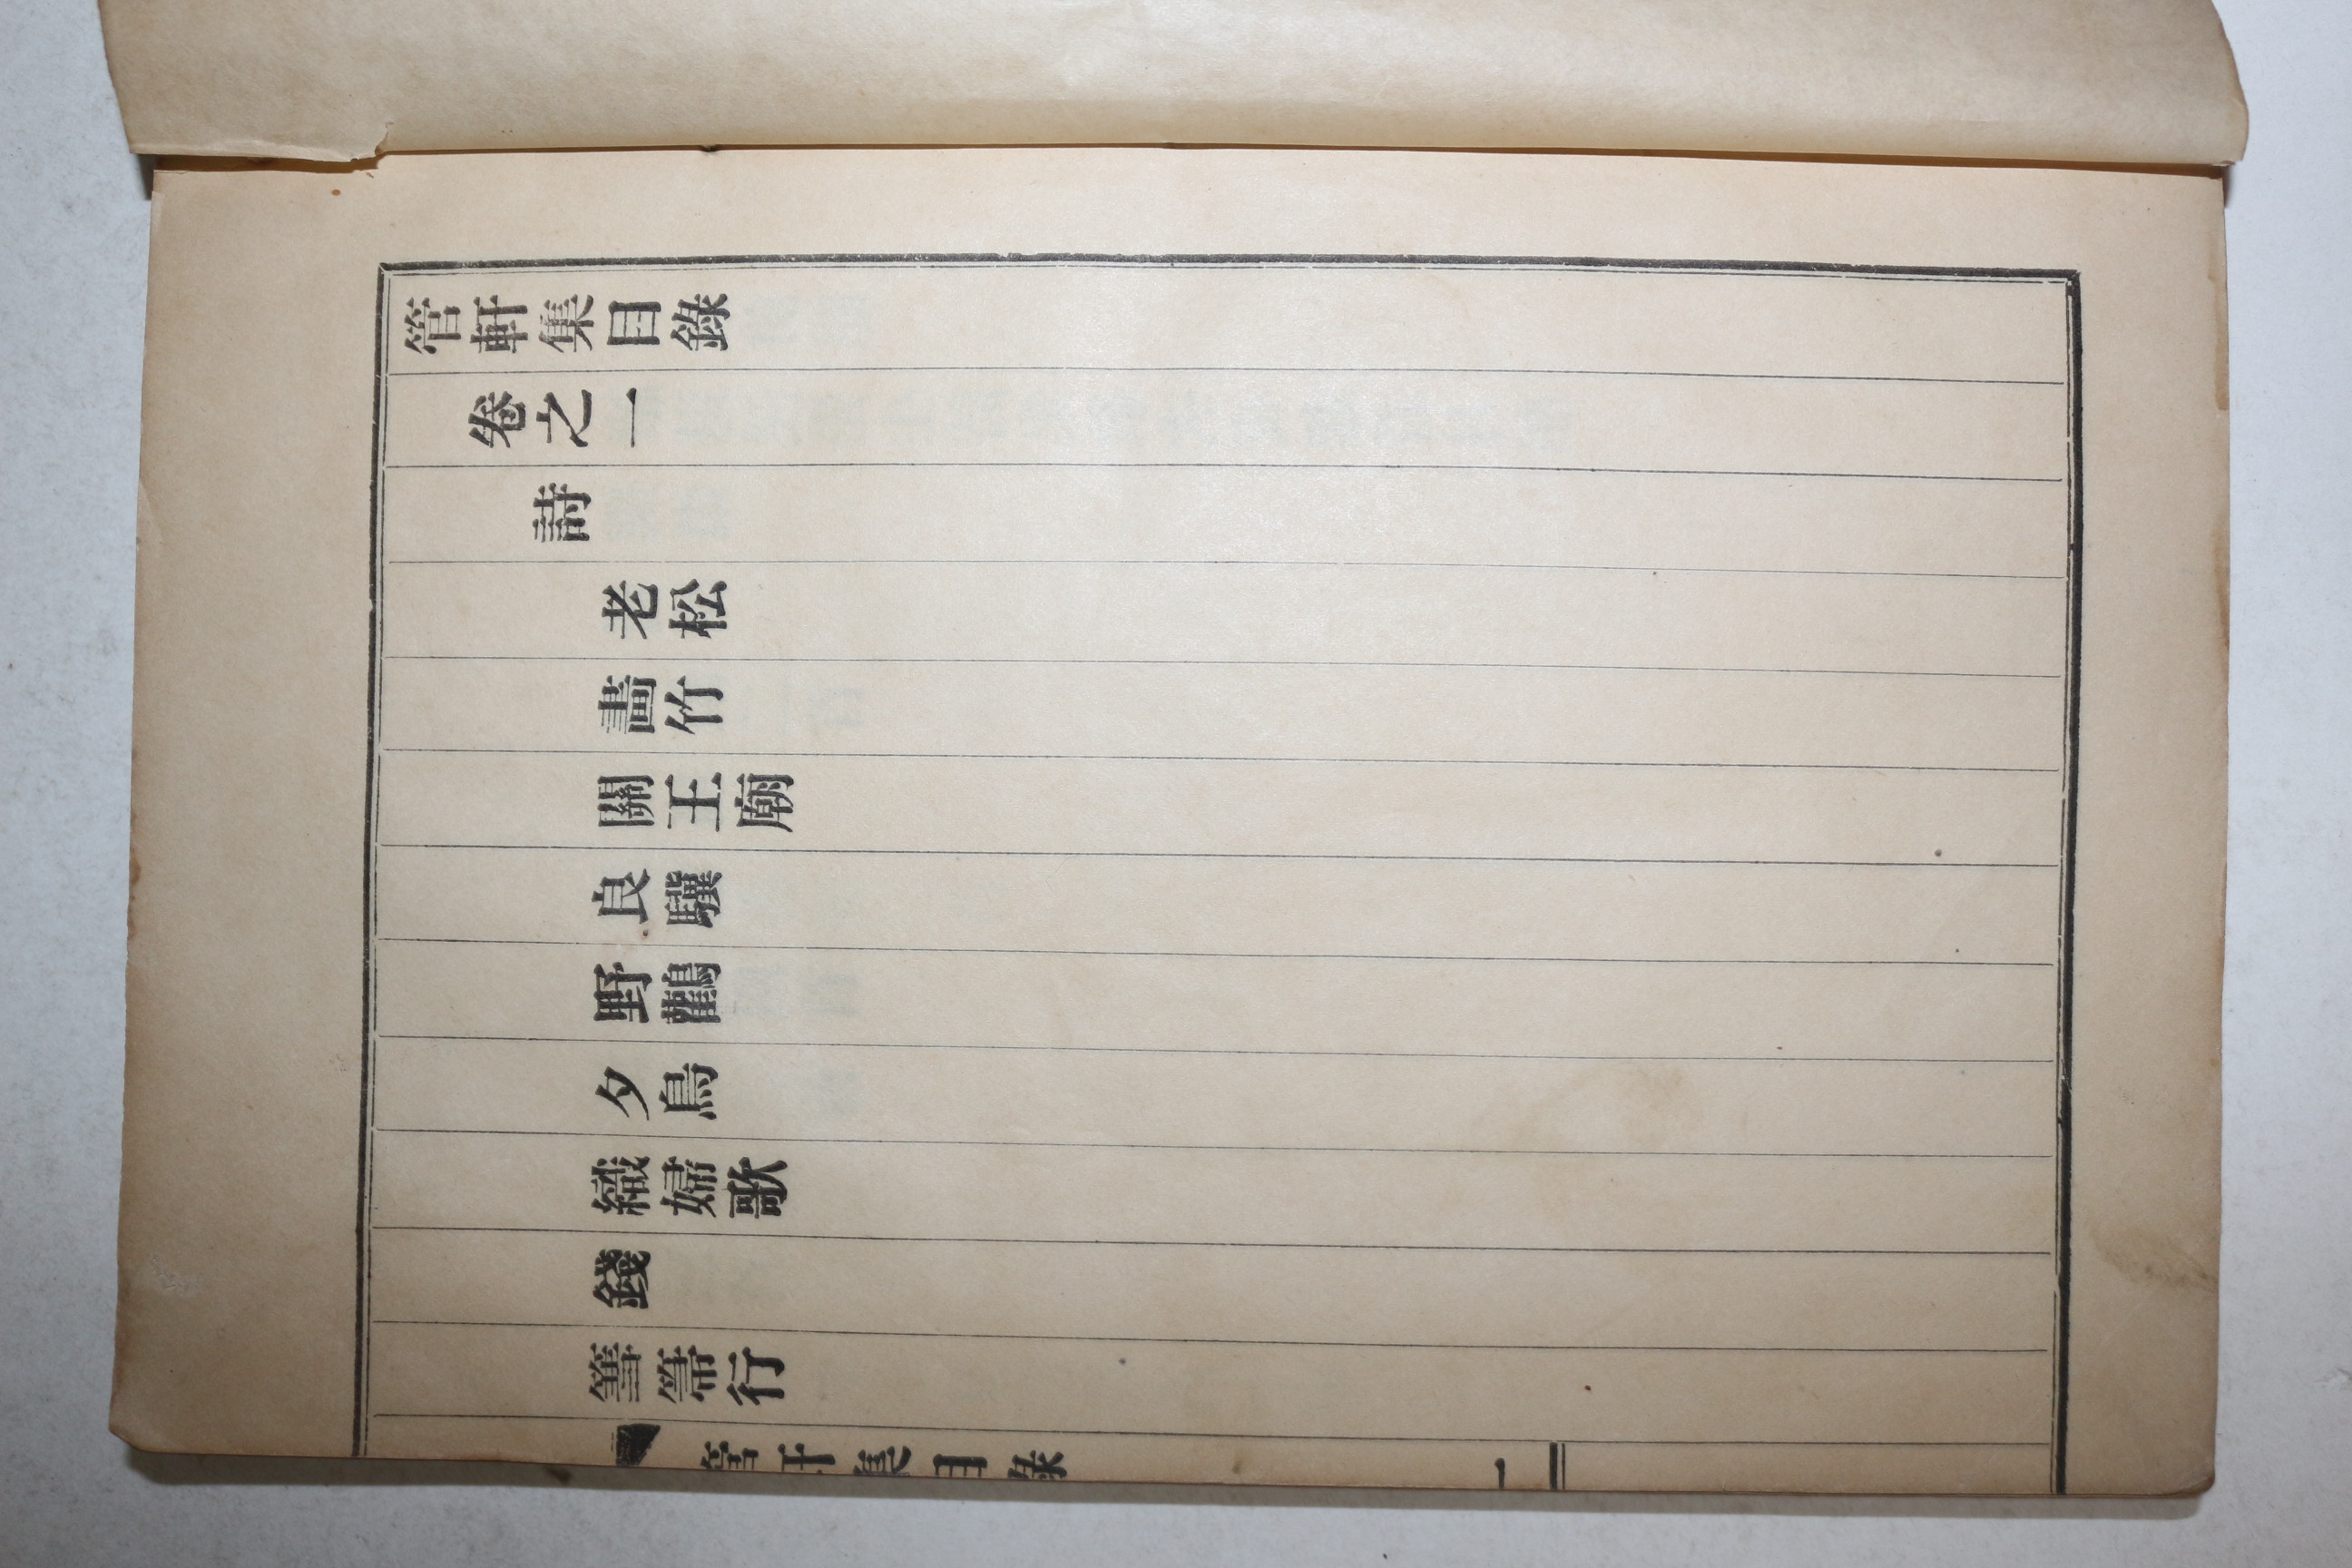 管軒集目錄
卷之一
詩
老松
畫竹
關王廟
良驥
野鸛
夕鳥
織婦歌
錢
篲箒行
管軒集目錄 一